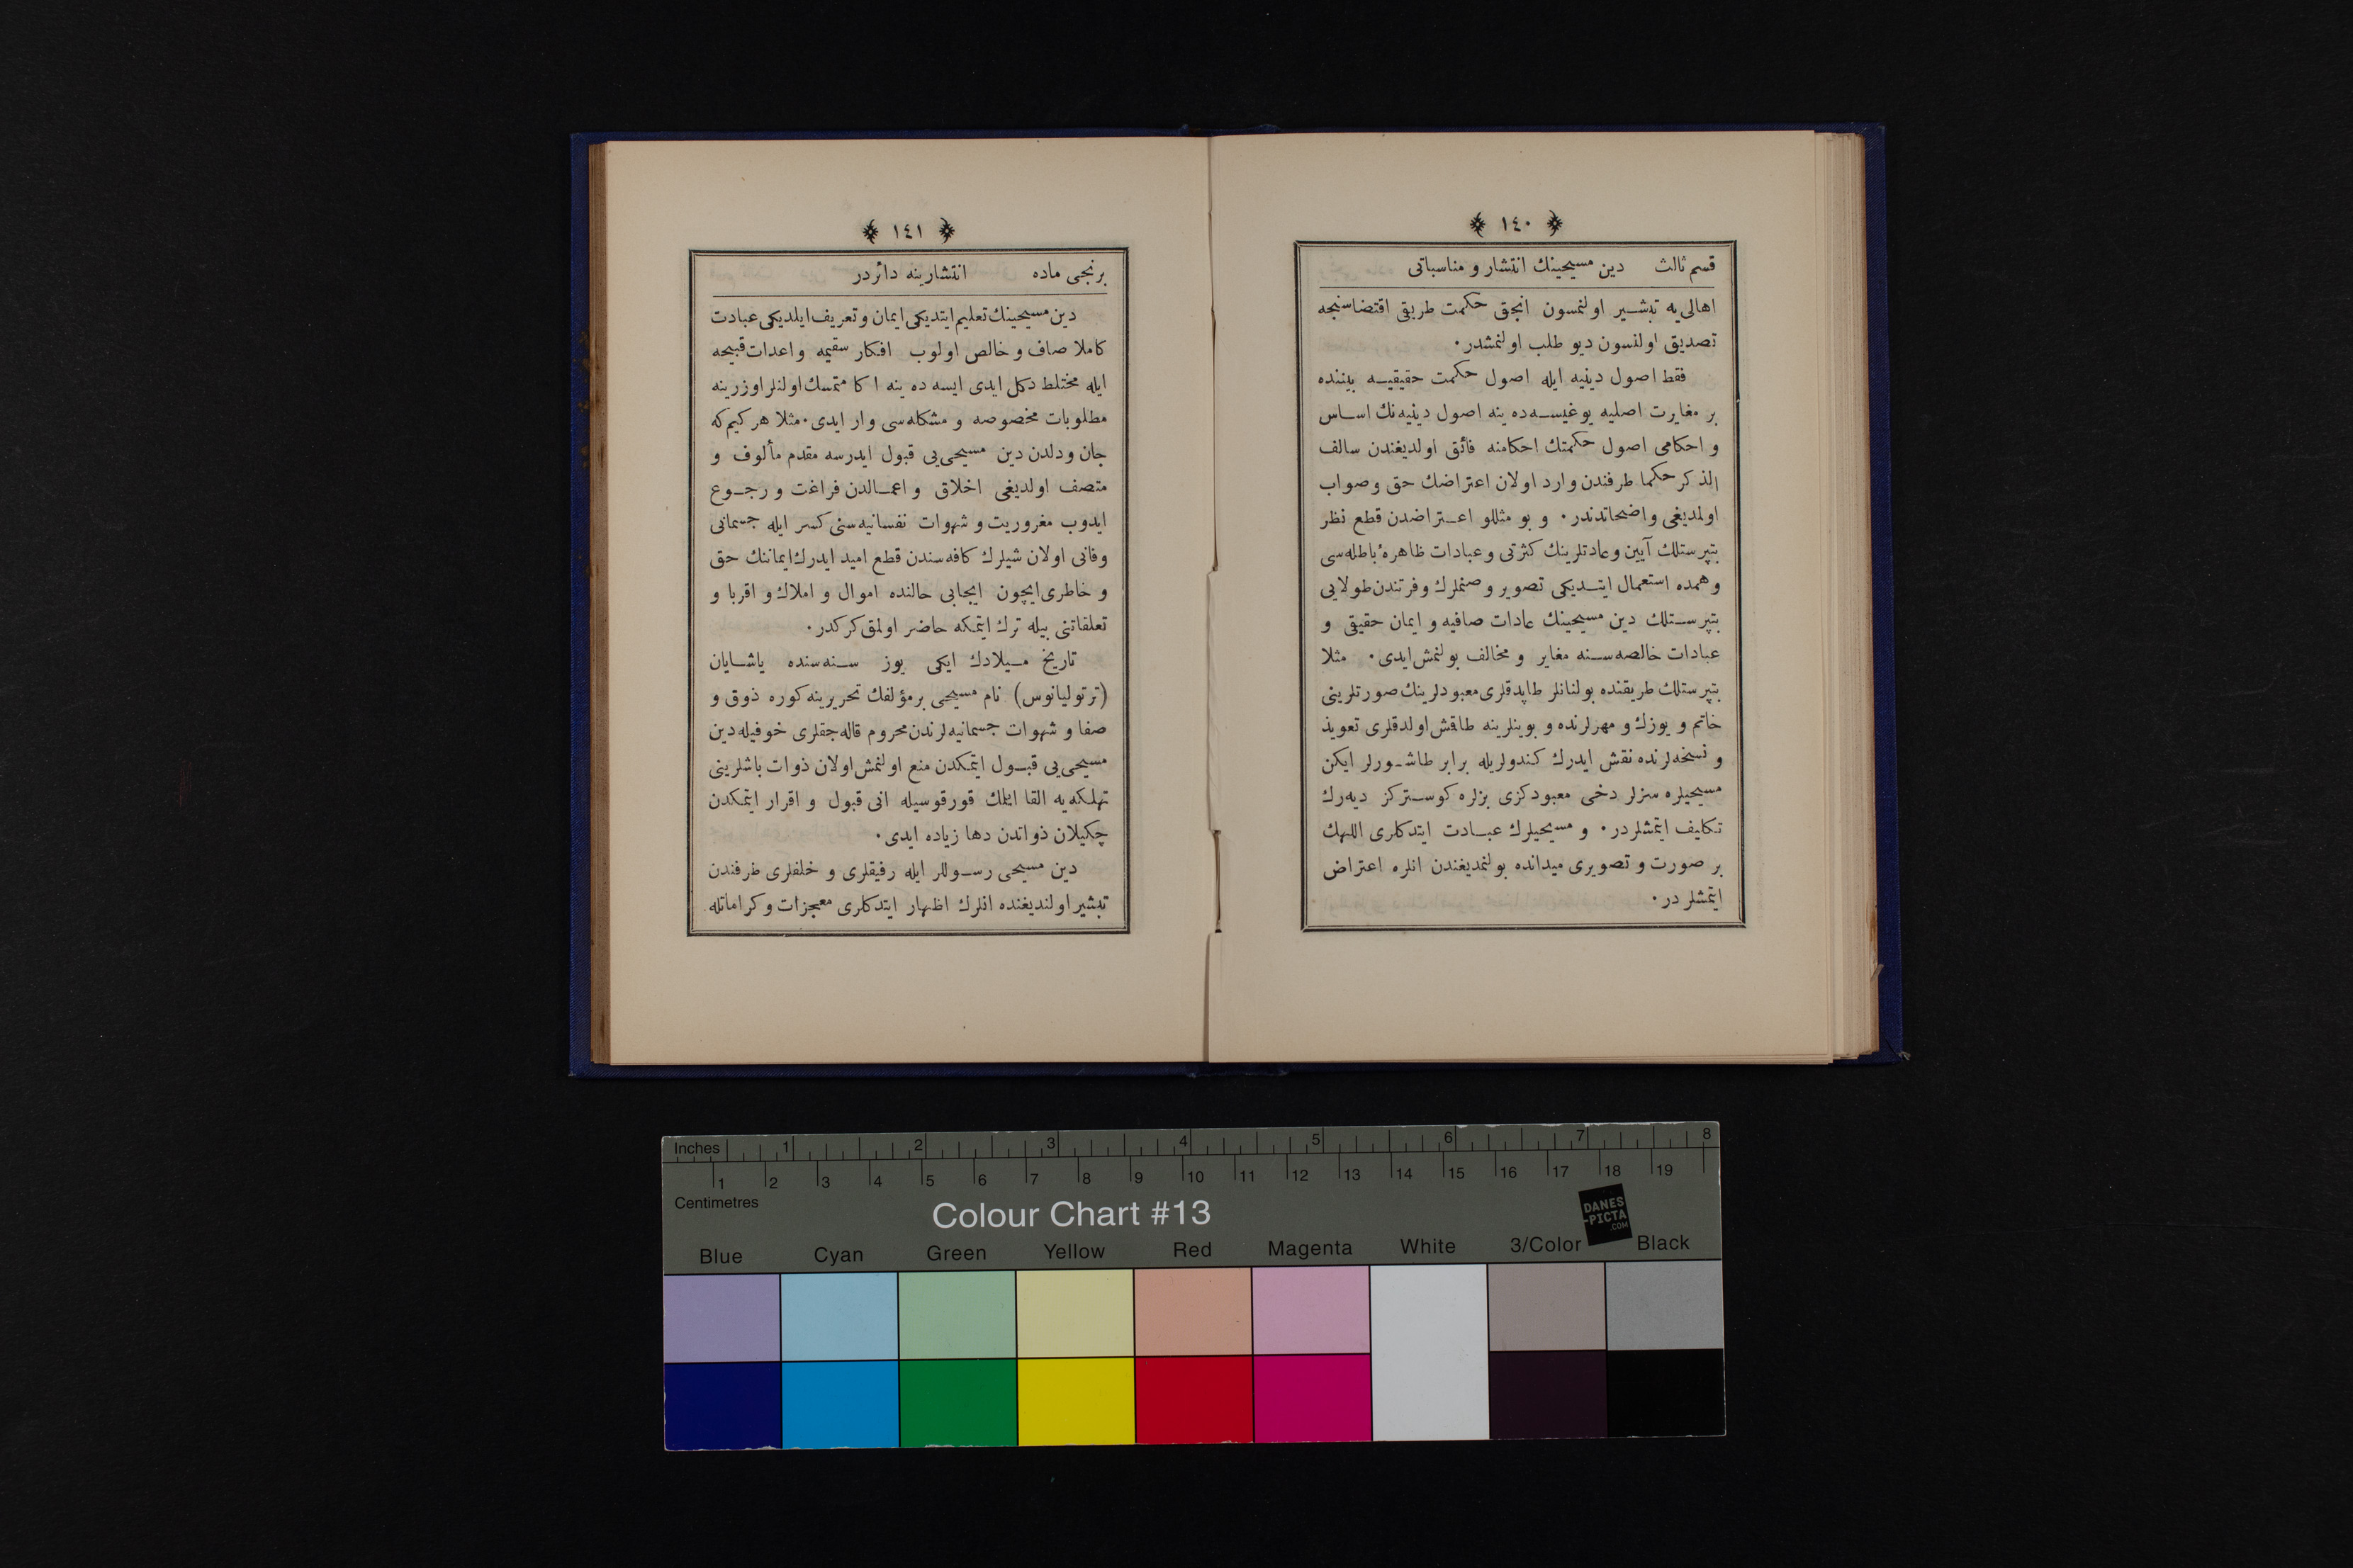 ﴿ ١٤٠ ﴾
قسم ثالث دين مسيحينك انتشار و مناسباتى
اهالى يه تبشير اولنمسون انجق حكمت طريقى اقتضاسنجه
تصديق اولنسون ديو طلب اولنمشدر.
فقط اصول دينيه ايله اصول حكمت حقيقيه بيننده
بر مغايرت اصليه يوغيسه‌ده ينه اصول دينيه‌نك اساس
و احكامى اصول حكمتك احكامنه فائق اولديغندن سالف
الذكر حكما طرفندن وارد اولان اعتراضك حق وصواب
اولمديغى واضحاتدندر. و بو مثللو اعتراضدن قطع نظر
بتپرستلك آيين وعادتلرينك كثرتى وعبادات ظاهرهٔ باطله‌سى
وهمده استعمال ايتديكى تصوير وصنملرك وفرتندن طولايى
بتپرستلك دين مسيحينك عادات صافيه و ايمان حقيقى و
عبادات خالصه‌سنه مغاير و مخالف بولنمش ايدى. مثلا
بتپرستلك طريقنده بولنانلر طاپدقلرى معبودلرينك صورتلرينى
خاتم و يوزك و مهرلرنده و بوينلرينه طاقمش اولدقلرى تعويذ
و نسخه‌لرنده نقش ايدرك كندولريله برابر طاشورلر ايكن
مسيحيلره سزلر دخى معبودكزى بزلره كوستركز ديه‌رك
تكليف ايتمشلردر. و مسيحيلرك عبادت ايتدكلرى اللهك
بر صورت و تصويرى ميدانده بولنمديغندن انلره اعتراض
ايتمشلر در.
﴿ ١٤١ ﴾
برنجى ماده انتشارينه دائردر
دين مسيحينك تعليم ايتديكى ايمان وتعريف ايلديكى عبادت
كاملا صاف و خالص اولوب افكار سقيمه واعدات قبيحه
ايله مختلط دكل ايدى ايسه ده ينه اكا متمسك اولنلر اوزرينه
مطلوبات مخصوصه و مشكله‌سى وار ايدى. مثلا هر كيم كه
جان ودلدن دين مسيحى‌يى قبول ايدرسه مقدم مألوف و
متصف اولديغى اخلاق و اعمالدن فراغت و رجوع
ايدوب مغروريت و شهوات نفسانيه‌سنى كسر ايله جسمانى
وفانى اولان شيلرك كافه‌سندن قطع اميد ايدرك ايماننك حق
و خاطرى ايچون ايجابى حالنده اموال و املاك و اقربا و
تعلقاتنى بيله ترك ايتمكه حاضر اولمق كركدر.
تاريخ ميلادك ايكى يوز سنه‌سنده ياشايان
(ترتوليانوس) نام مسيحى برمؤلفك تحريرينه كوره ذوق و
صفا و شهوات جسمانيه‌لرندن محروم قاله‌جقلرى خوفيله دين
مسيحى‌يى قبول ايتمكدن منع اولنمش اولان ذوات باشلرينى
تهلكه‌يه القا ايتمك قورقوسيله انى قبول و اقرار ايتمكدن
چكيلان ذواتدن دها زياده ايدى.
دين مسيحى رسوللر ايله رفيقلرى و خلفلرى طرفندن
تبشير اولنديغنده انلرك اظهار ايتدكلرى معجزات وكراماتله
Inches 1 2 3 4 5 6 7 8
1 2 3 4 5 6 7 8 9 10 11 12 13 14 15 16 17 18 19
Centimetres
Colour Chart #13
DANES
-PICTA
.COM
Blue Cyan Green Yellow Red Magenta White 3/Color Black